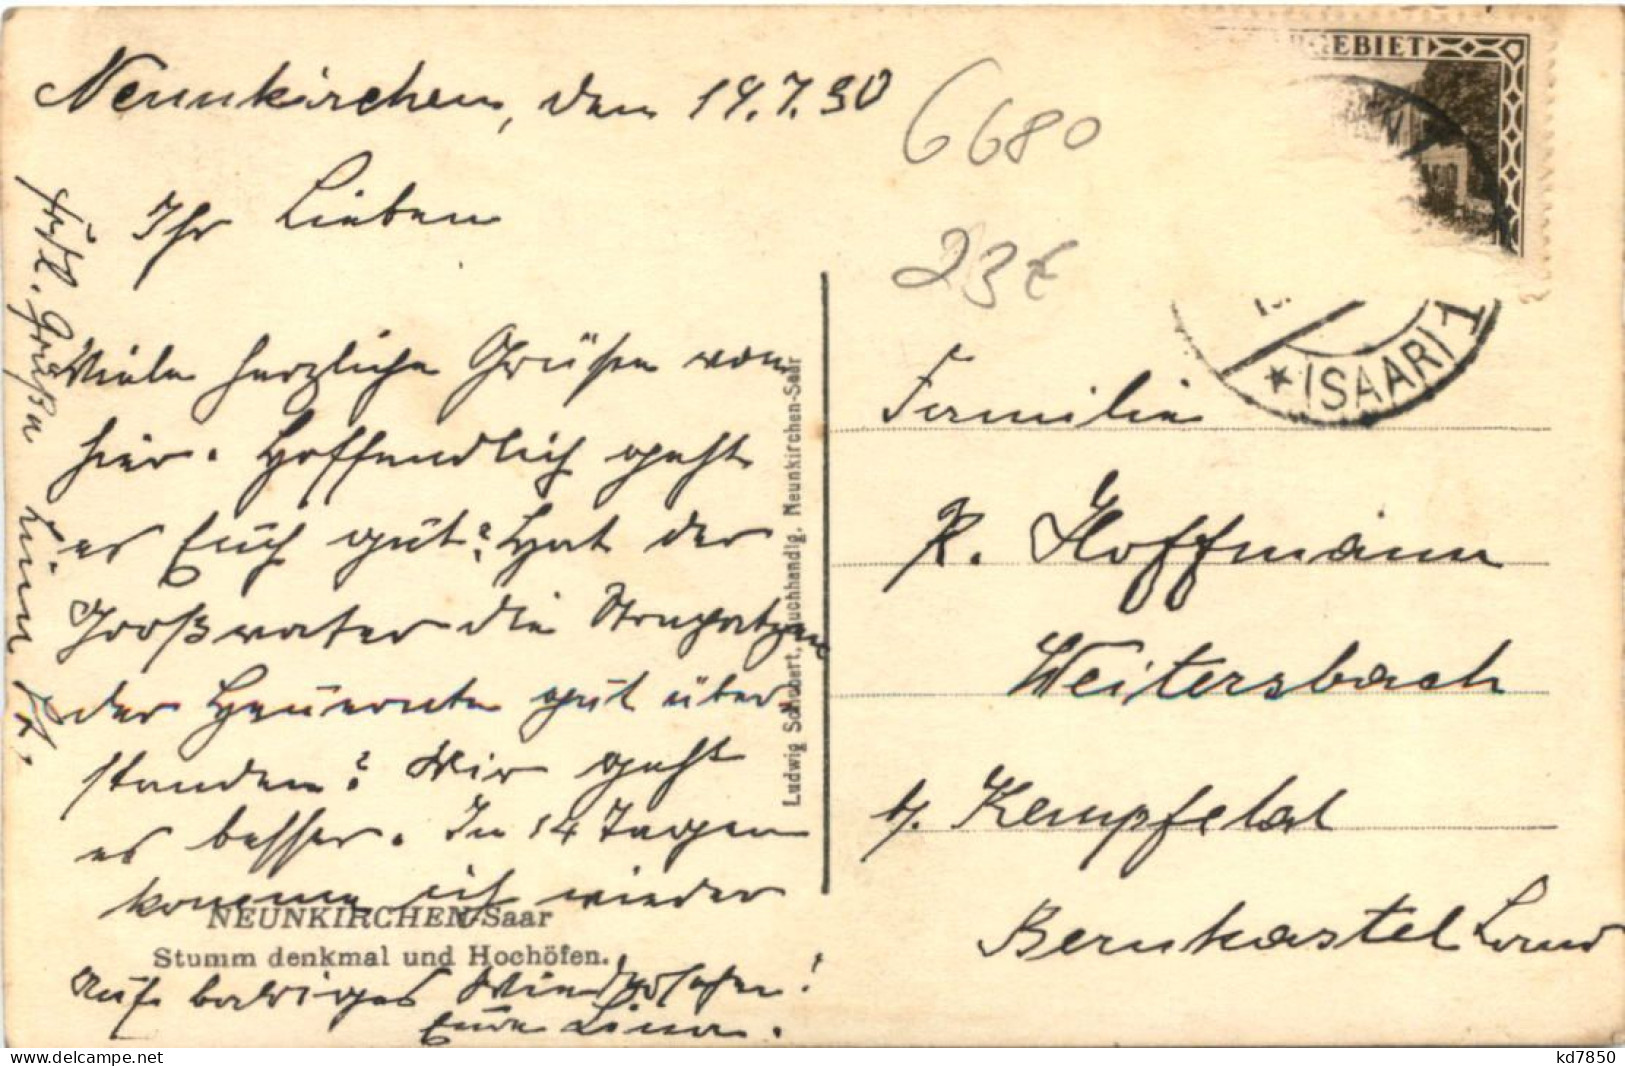 Neunkirchen, den 19.7.30
Ihr Lieben
Viele herzliche Grüße von
hier. Hoffendlich geht
es Euch gut? Hat der
Großvater die Strapatzen
der Heuernte gut über-
standen? Wir geht
es besser. In 14 Tagen
komme ich wieder
NEUNKIRCHEN-Saar
Stumm denkmal und Hochöfen.
Auf baldiges Wiedersehen!
Eure Lina.
frdl. Grüße
Ludwig Schubert, Buchhandlg. Neunkirchen-Saar
6680
23€
GEBIET
* (SAAR) 1
Familie
R. Hoffmann
Weitersbach
b/. Kempfeld
Bernkastel Land
kd7850